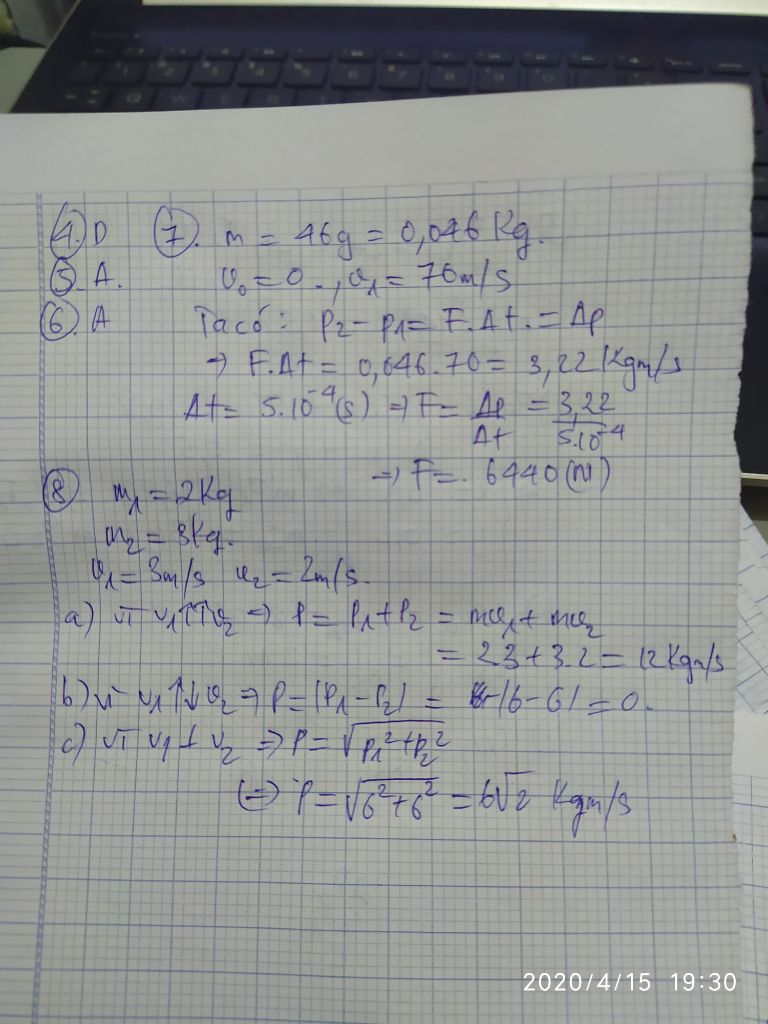 4. D 7. m = 46g = 0,046 Kg.
5. A. v₀ = 0 ., v₁ = 70m/s
6. A Ta có: p₂ - p₁ = F.Δt. = Δp
→ F.Δt = 0,046.70 = 3,22 Kgm/s
Δt = 5.10⁻⁴(s) ⇒ F = Δp/Δt = 3,22/5.10⁻⁴
⇒ F = . 6440 (N)
8 m₁ = 2Kg
m₂ = 3Kg.
v₁ = 3m/s v₂ = 2m/s.
a) vì v₁↑↑v₂ ⇒ P = P₁ + P₂ = mv₁ + mv₂
= 2.3 + 3.2 = 12 Kgm/s
b) vì v₁↑↓v₂ ⇒ P = |P₁ - P₂| = |6 - 6| = 0.
c) vì v₁ ⊥ v₂ ⇒ P = √(P₁² + P₂²)
(⇒) P = √(6² + 6²) = 6√2 Kgm/s
2020/4/15 19:30